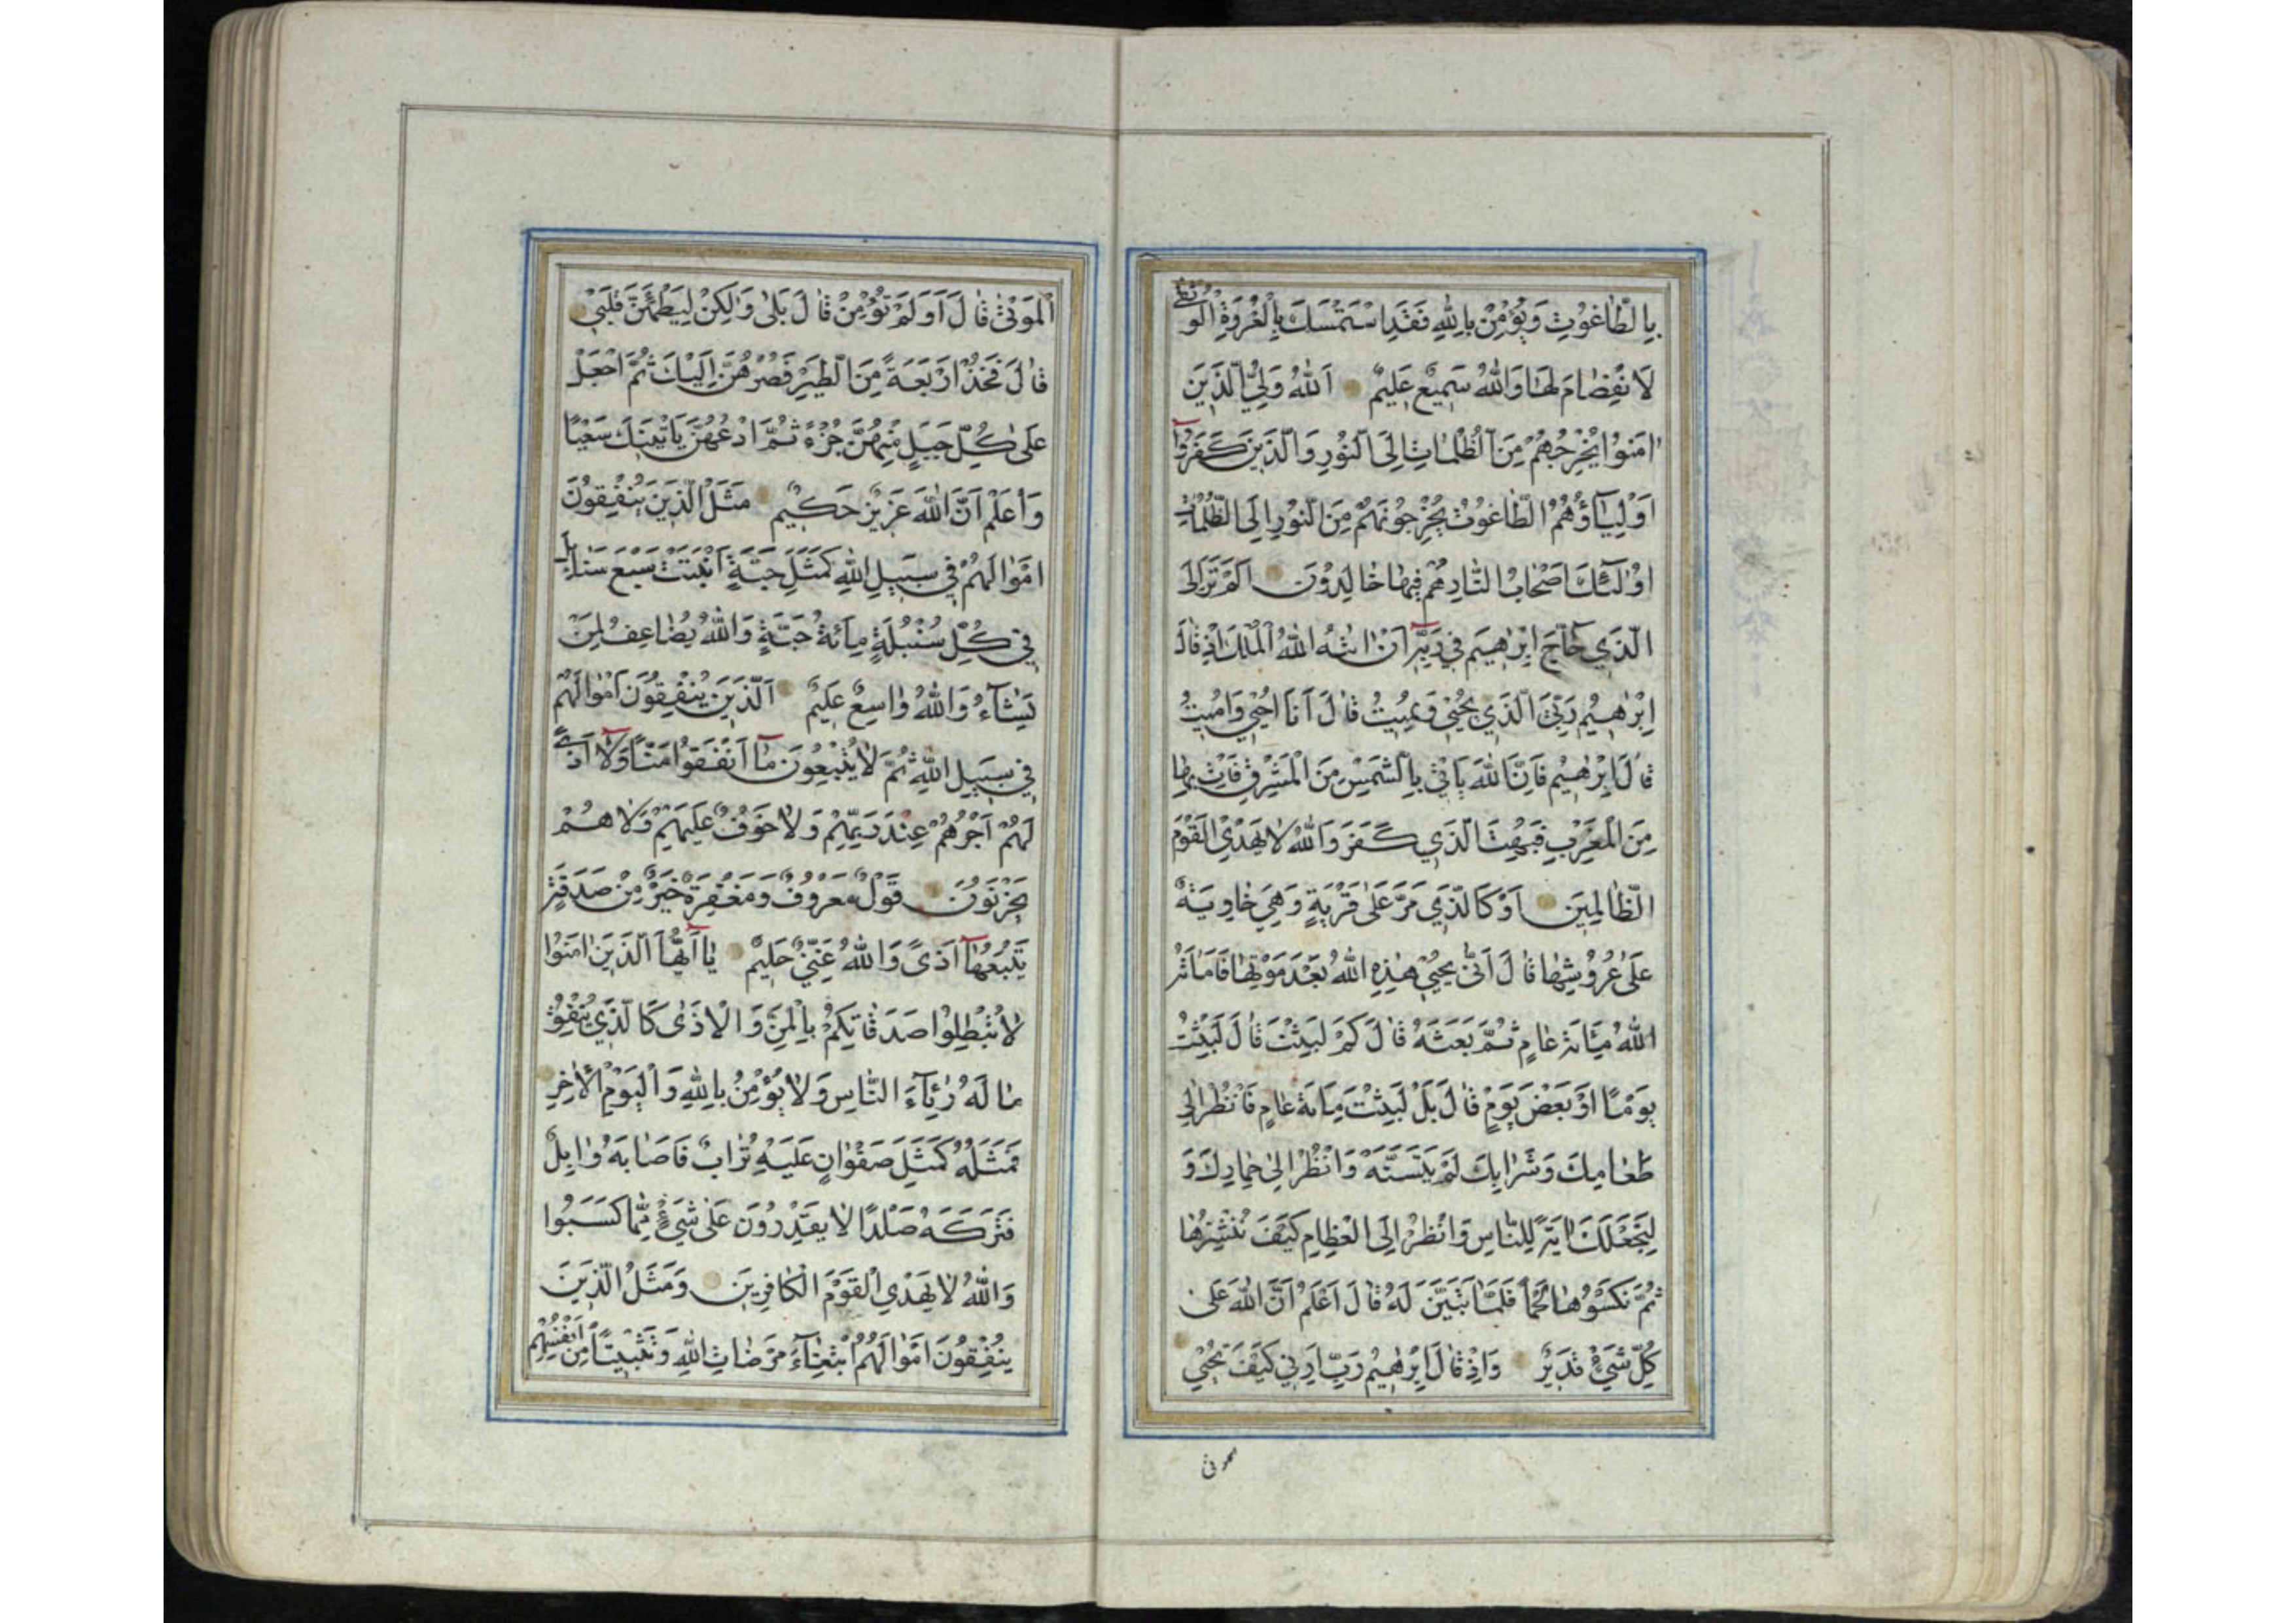 بِالطَّاغُوتِ وَيُؤْمِنْ بِاللّٰهِ فَقَدِ اسْتَمْسَكَ بِالْعُرْوَةِ الْوُثْقٰى
لَا انْفِصَامَ لَهَا وَاللّٰهُ سَمِيعٌ عَلِيمٌ اَللّٰهُ وَلِيُّ الَّذِينَ
اٰمَنُوا يُخْرِجُهُمْ مِنَ الظُّلُمَاتِ اِلَى النُّورِ وَالَّذِينَ كَفَرُوا
اَوْلِيَاؤُهُمُ الطَّاغُوتُ يُخْرِجُونَهُمْ مِنَ النُّورِ اِلَى الظُّلُمَاتِ
اُولٰئِكَ اَصْحَابُ النَّارِ هُمْ فِيهَا خَالِدُونَ اَلَمْ تَرَ اِلَى
الَّذِي حَاجَّ اِبْرٰهِيمَ فِي رَبِّهِ اَنْ اٰتٰهُ اللّٰهُ الْمُلْكَ اِذْ قَالَ
اِبْرٰهِيمُ رَبِّيَ الَّذِي يُحْيِي وَيُمِيتُ قَالَ اَنَا اُحْيِي وَاُمِيتُ
قَالَ اِبْرٰهِيمُ فَاِنَّ اللّٰهَ يَأْتِي بِالشَّمْسِ مِنَ الْمَشْرِقِ فَأْتِ بِهَا
مِنَ الْمَغْرِبِ فَبُهِتَ الَّذِي كَفَرَ وَاللّٰهُ لَا يَهْدِي الْقَوْمَ
الظَّالِمِينَ اَوْ كَالَّذِي مَرَّ عَلٰى قَرْيَةٍ وَهِيَ خَاوِيَةٌ
عَلٰى عُرُوشِهَا قَالَ اَنّٰى يُحْيِي هٰذِهِ اللّٰهُ بَعْدَ مَوْتِهَا فَاَمَاتَهُ
اللّٰهُ مِائَةَ عَامٍ ثُمَّ بَعَثَهُ قَالَ كَمْ لَبِثْتَ قَالَ لَبِثْتُ
يَوْمًا اَوْ بَعْضَ يَوْمٍ قَالَ بَلْ لَبِثْتَ مِائَةَ عَامٍ فَانْظُرْ اِلٰى
طَعَامِكَ وَشَرَابِكَ لَمْ يَتَسَنَّهْ وَانْظُرْ اِلٰى حِمَارِكَ وَ
لِنَجْعَلَكَ اٰيَةً لِلنَّاسِ وَانْظُرْ اِلَى الْعِظَامِ كَيْفَ نُنْشِزُهَا
ثُمَّ نَكْسُوهَا لَحْمًا فَلَمَّا تَبَيَّنَ لَهُ قَالَ اَعْلَمُ اَنَّ اللّٰهَ عَلٰى
كُلِّ شَيْءٍ قَدِيرٌ وَاِذْ قَالَ اِبْرٰهِيمُ رَبِّ اَرِنِي كَيْفَ تُحْيِي
الْمَوْتٰى قَالَ اَوَلَمْ تُؤْمِنْ قَالَ بَلٰى وَلٰكِنْ لِيَطْمَئِنَّ قَلْبِي
قَالَ فَخُذْ اَرْبَعَةً مِنَ الطَّيْرِ فَصُرْهُنَّ اِلَيْكَ ثُمَّ اجْعَلْ
عَلٰى كُلِّ جَبَلٍ مِنْهُنَّ جُزْءً ثُمَّ ادْعُهُنَّ يَأْتِينَكَ سَعْيًا
وَاعْلَمْ اَنَّ اللّٰهَ عَزِيزٌ حَكِيمٌ مَثَلُ الَّذِينَ يُنْفِقُونَ
اَمْوَالَهُمْ فِي سَبِيلِ اللّٰهِ كَمَثَلِ حَبَّةٍ اَنْبَتَتْ سَبْعَ سَنَابِلَ
فِي كُلِّ سُنْبُلَةٍ مِائَةُ حَبَّةٍ وَاللّٰهُ يُضَاعِفُ لِمَنْ
يَشَآءُ وَاللّٰهُ وَاسِعٌ عَلِيمٌ اَلَّذِينَ يُنْفِقُونَ اَمْوَالَهُمْ
فِي سَبِيلِ اللّٰهِ ثُمَّ لَا يُتْبِعُونَ مَآ اَنْفَقُوا مَنًّا وَلَآ اَذًى
لَهُمْ اَجْرُهُمْ عِنْدَ رَبِّهِمْ وَلَا خَوْفٌ عَلَيْهِمْ وَلَا هُمْ
يَحْزَنُونَ قَوْلٌ مَعْرُوفٌ وَمَغْفِرَةٌ خَيْرٌ مِنْ صَدَقَةٍ
يَتْبَعُهَآ اَذًى وَاللّٰهُ غَنِيٌّ حَلِيمٌ يَآ اَيُّهَا الَّذِينَ اٰمَنُوا
لَا تُبْطِلُوا صَدَقَاتِكُمْ بِالْمَنِّ وَالْاَذٰى كَالَّذِي يُنْفِقُ
مَالَهُ رِئَآءَ النَّاسِ وَلَا يُؤْمِنُ بِاللّٰهِ وَالْيَوْمِ الْاٰخِرِ
فَمَثَلُهُ كَمَثَلِ صَفْوَانٍ عَلَيْهِ تُرَابٌ فَاَصَابَهُ وَابِلٌ
فَتَرَكَهُ صَلْدًا لَا يَقْدِرُونَ عَلٰى شَيْءٍ مِمَّا كَسَبُوا
وَاللّٰهُ لَا يَهْدِي الْقَوْمَ الْكَافِرِينَ وَمَثَلُ الَّذِينَ
يُنْفِقُونَ اَمْوَالَهُمُ ابْتِغَآءَ مَرْضَاتِ اللّٰهِ وَتَثْبِيتًا مِنْ اَنْفُسِهِمْ